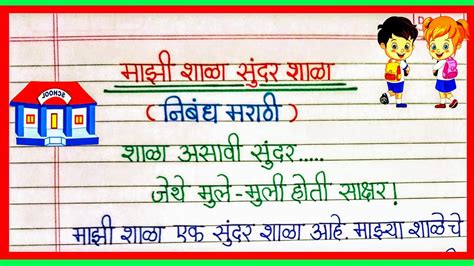 माझी शाळा सुंदर शाळा
( निबंध मराठी )
SCHOOL
शाळा असावी सुंदर.....
जेथे मुले-मुली होती साक्षर!
माझी शाळा एक सुंदर शाळा आहे. माझ्या शाळेचे